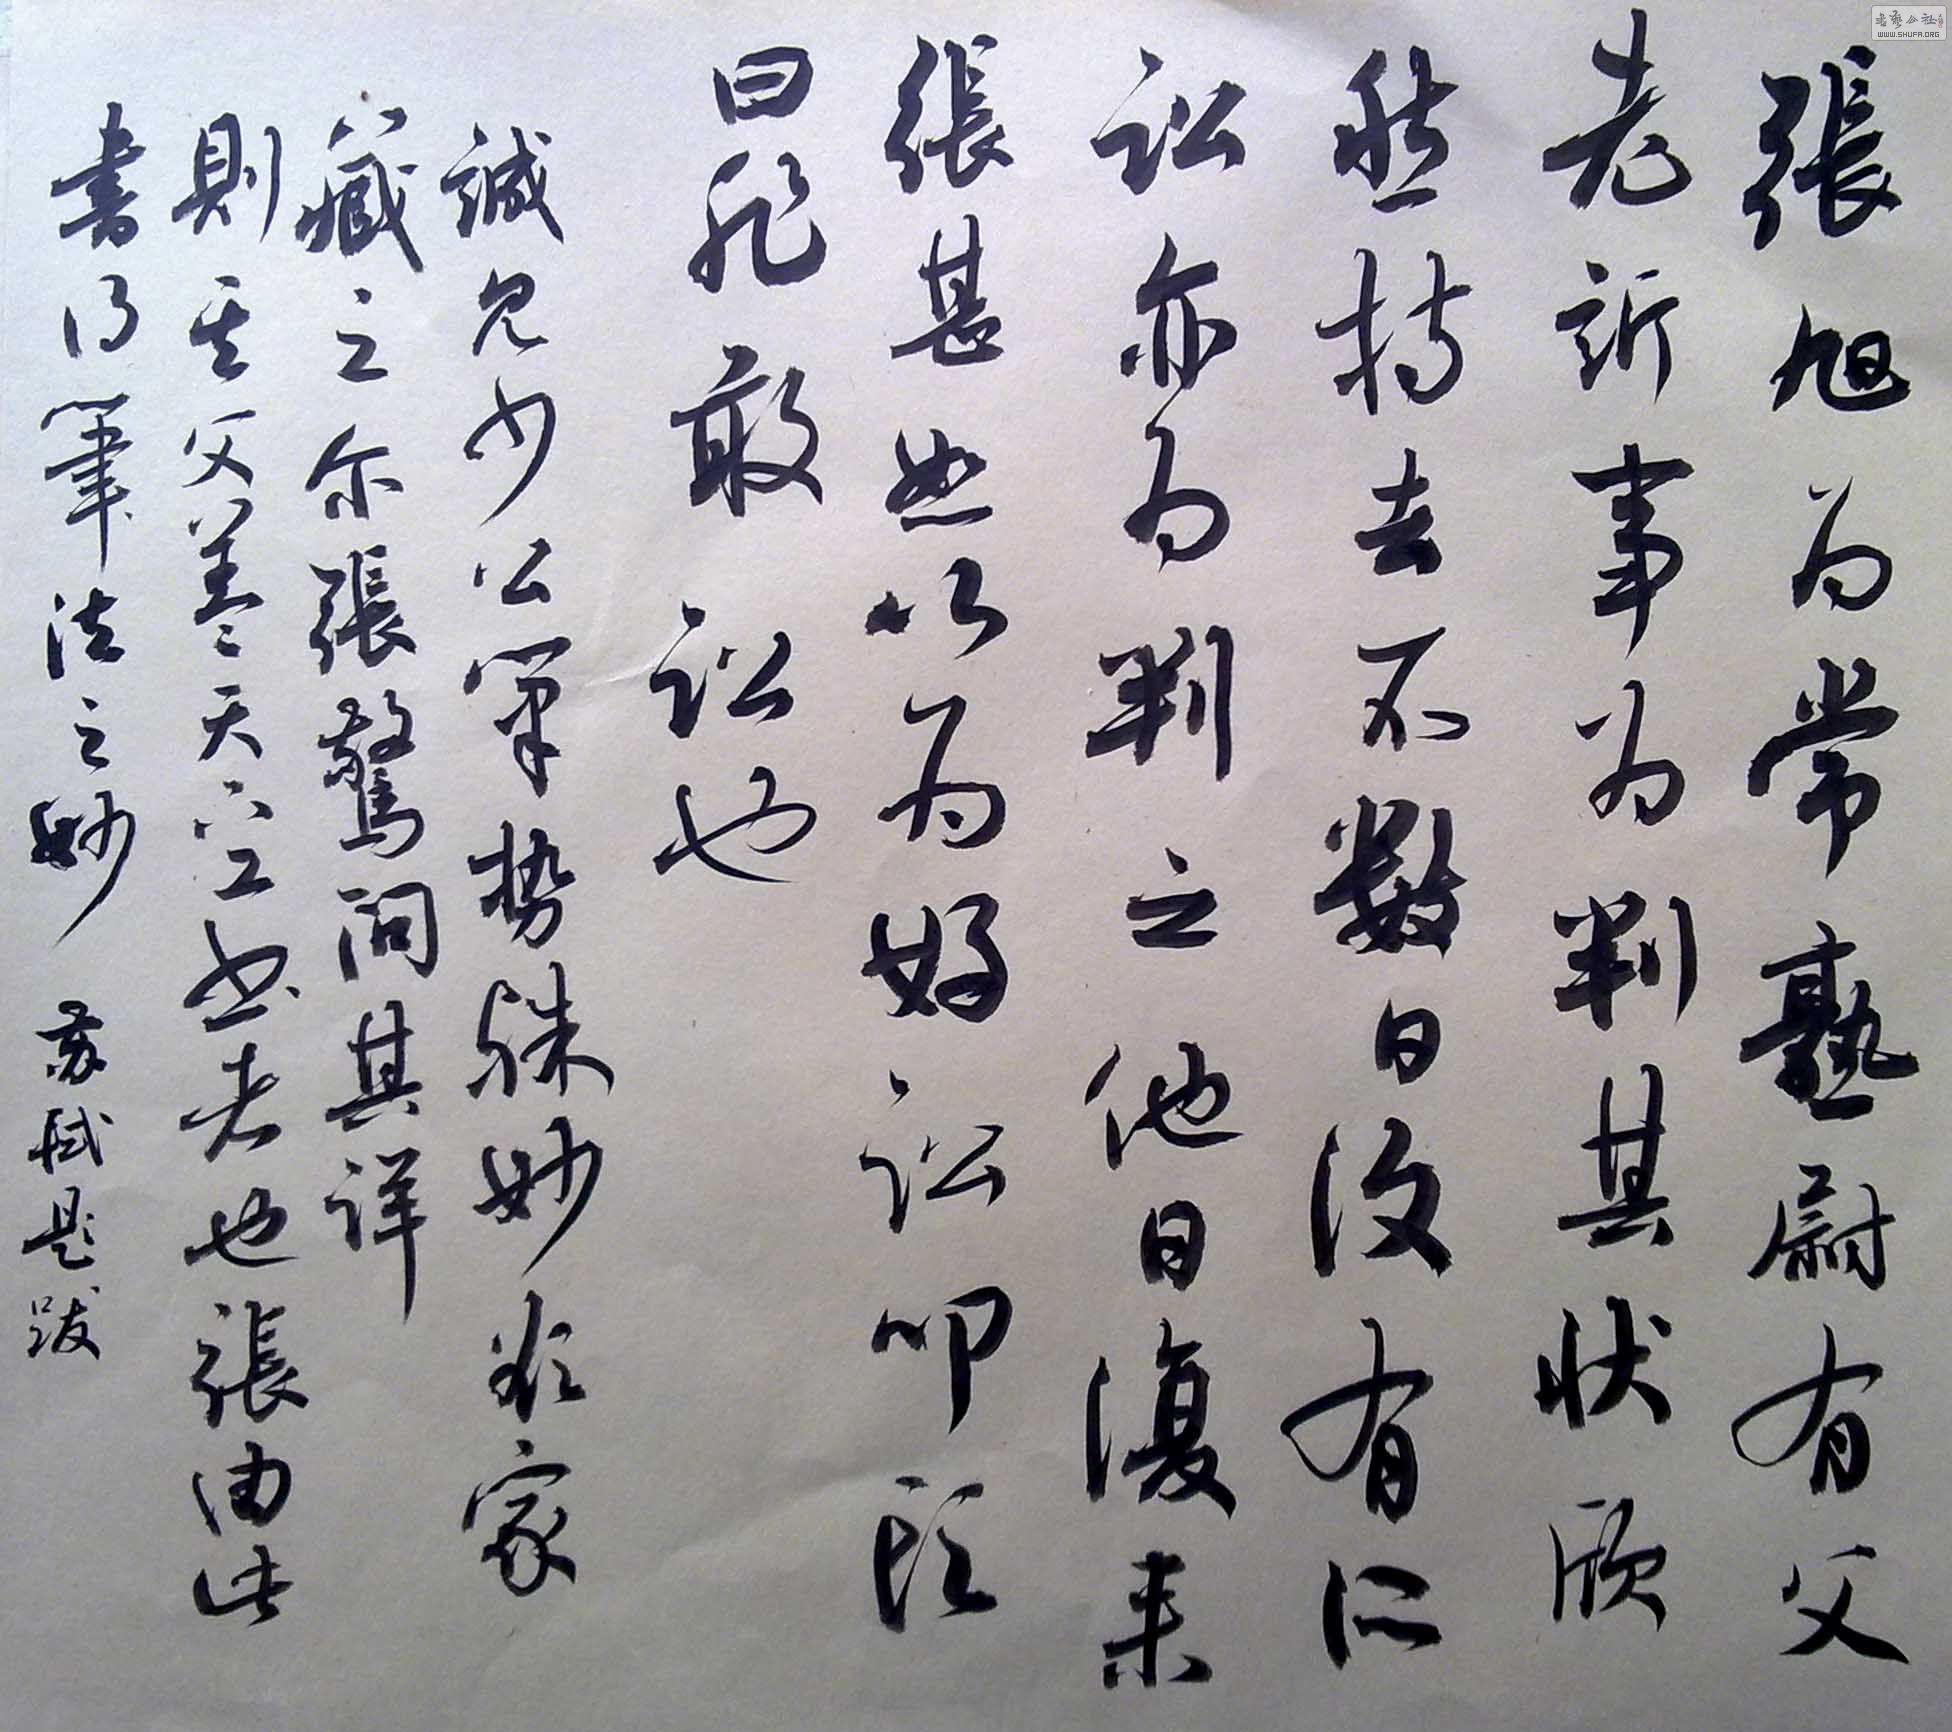 張旭为常熟尉有父
老訴事为判其状欣
然持去不数日復有所
訟亦为判之他日復来
張甚怒以为好訟叩頭
曰非敢訟也
誠見少公筆势殊妙欲家
藏之尔張驚问其詳
則其父盖天下工书者也張由此
書得筆法之妙 蘇軾題跋
WWW.SHUFA.ORG